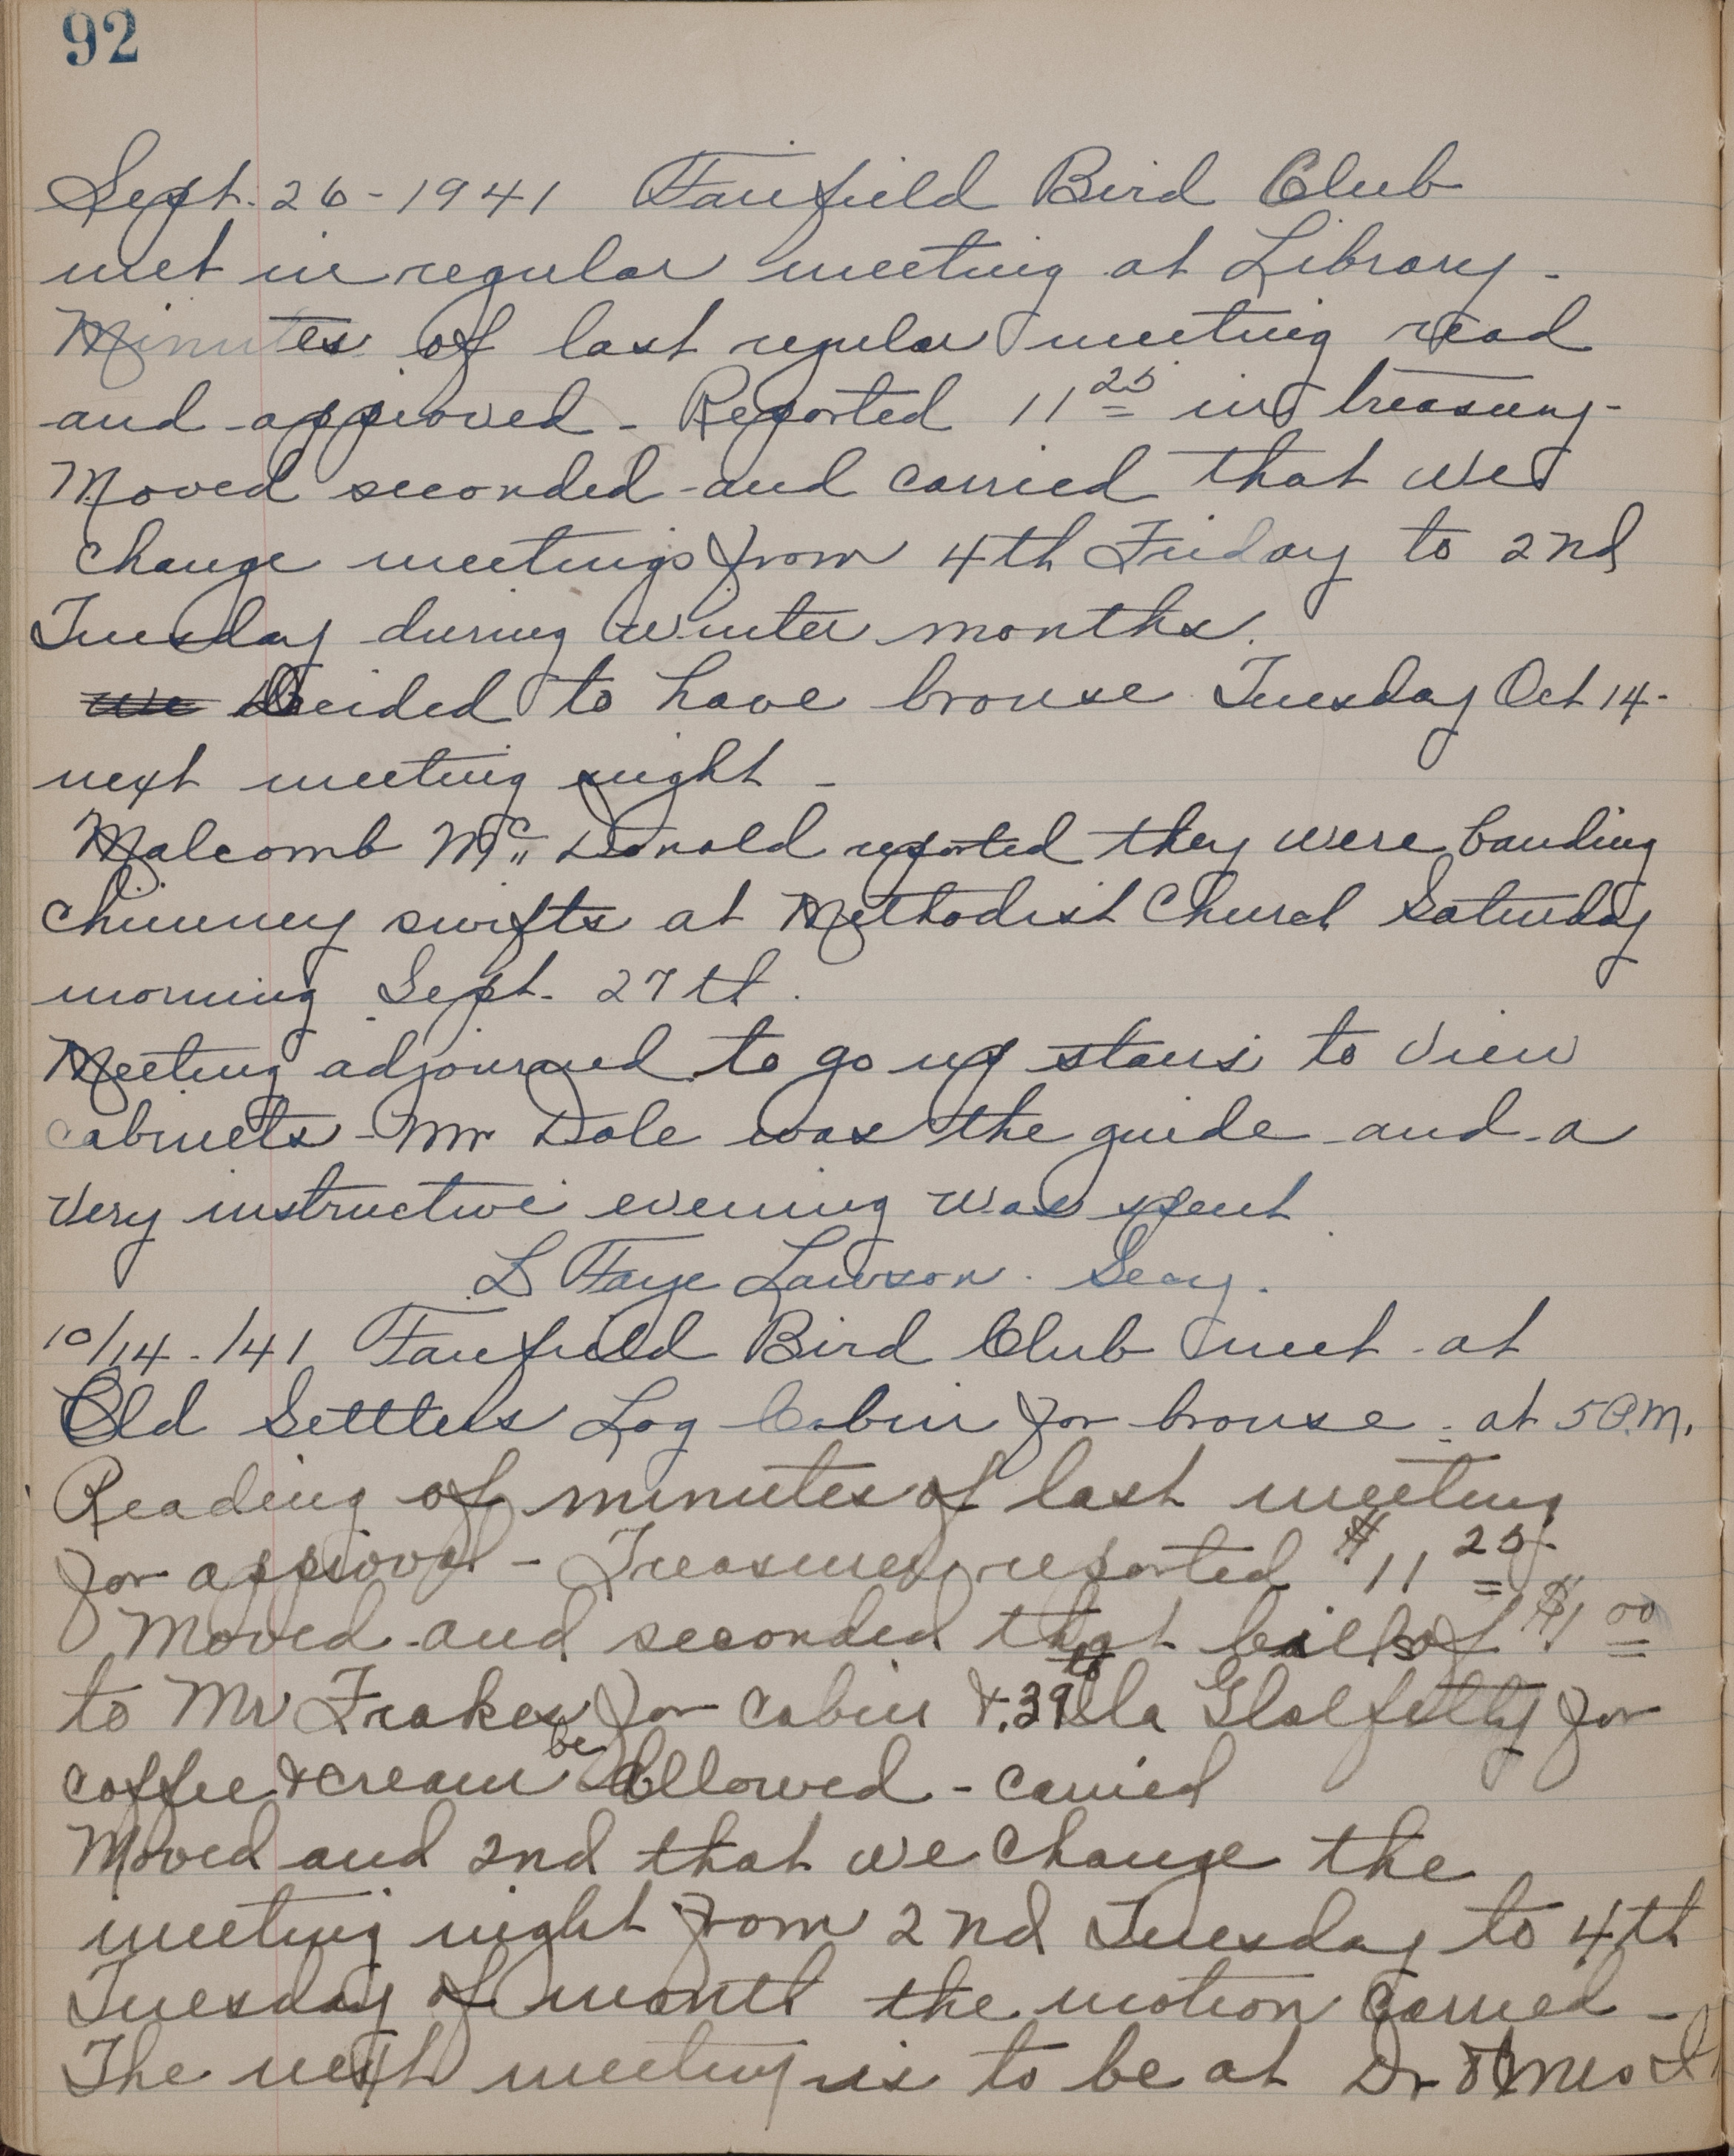 92
Sept. 26 - 1941 Fairfield Bird Club
met in regular meeting at Library -
Minutes of last regular meeting read
and approved - Reported 11 25 in treasury -
Moved seconded and carried that we
change meetings from 4th Friday to 2nd
Tuesday during winter months.
we Decided to have browse Tuesday Oct 14 -
next meeting night -
Malcomb Mc Donald reported they were banding
chimney swifts at Methodist Church Saturday
morning Sept. 27th.
Meeting adjourned to go up stairs to view
cabinets - Mr Dale was the guide and a
very instructive evening was spent
L Faye Lawson. Secy.
10/14 - /41 Fairfield Bird Club met at
Old Settlers Log Cabin for browse - at 5 P.M.
Reading of minutes of last meeting
for approval - Treasurer reported $11 25
Moved and seconded that bills of $1 00
to Mr Frakes for cabin & .39 to
coffee & cream be allowed - carried
Moved and 2nd that we change the
meeting night from 2nd Tuesday to 4th
Tuesday of month the motion carried -
The next meeting is to be at Dr & Mrs